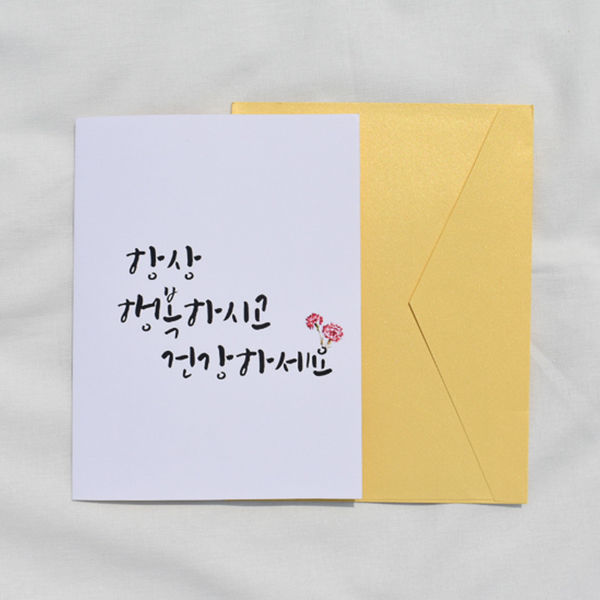 항상
행복하시고
건강하세요